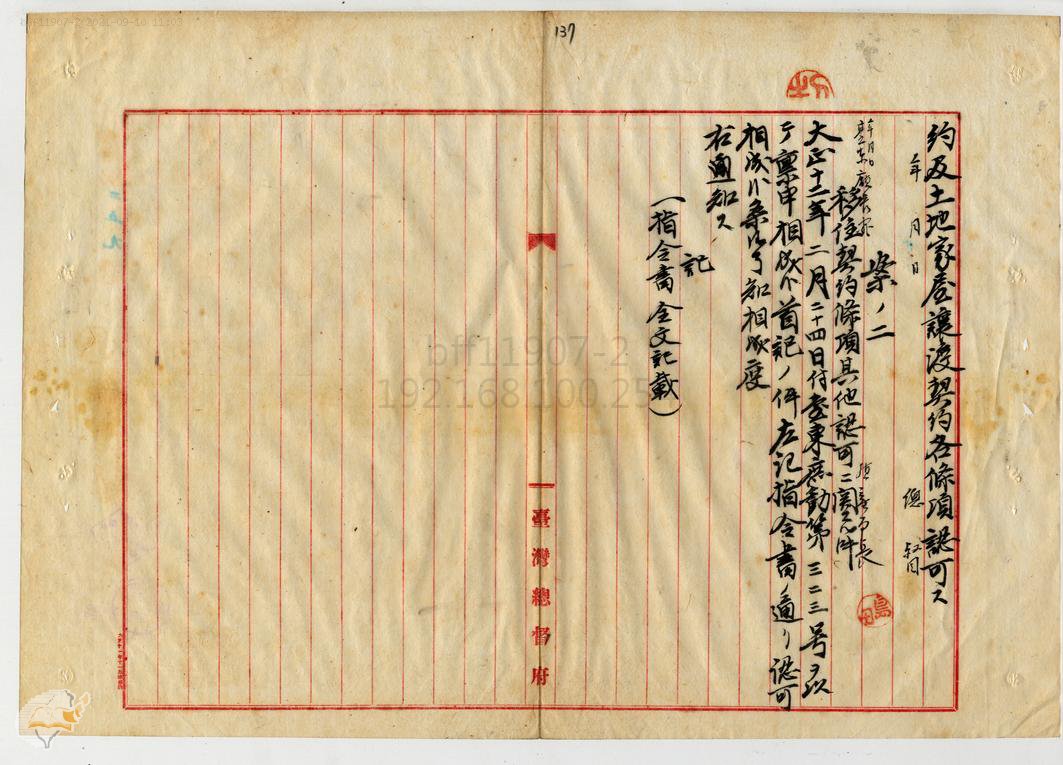 bff11907-2 2021-09-10 11:03
137
約及土地家屋讓渡契約各條項認可ス
年 月 日 總督
案ノ二
年月日
臺東廳長宛 長
移住契約條項其他認可ニ關スル件
大正十二年二月二十四日付臺東庶勸第三二三号ヲ以
テ稟申相成ル首記ノ件左記指令書ノ通リ認可
相成ル條御了知相成度
右通知ス
記
(指令書全文記載)
臺灣總督府
bff11907-2
192.168.100.25